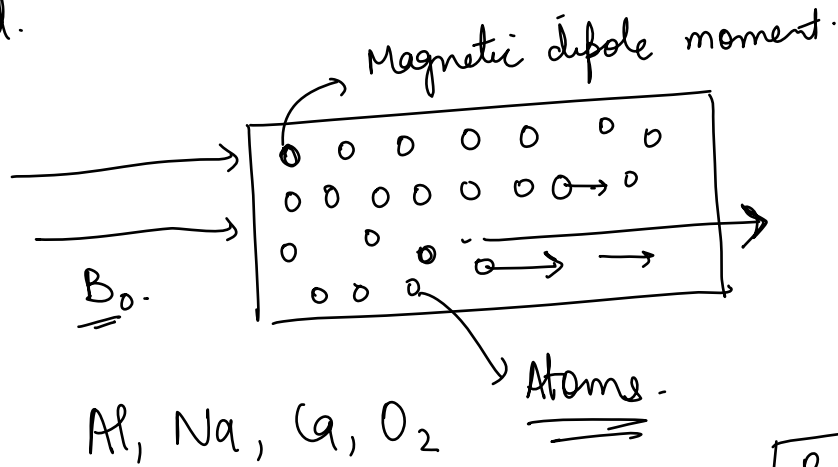 d.
Magnetic dipole moment.
B₀.
Atoms.
Al, Na, Ca, O₂